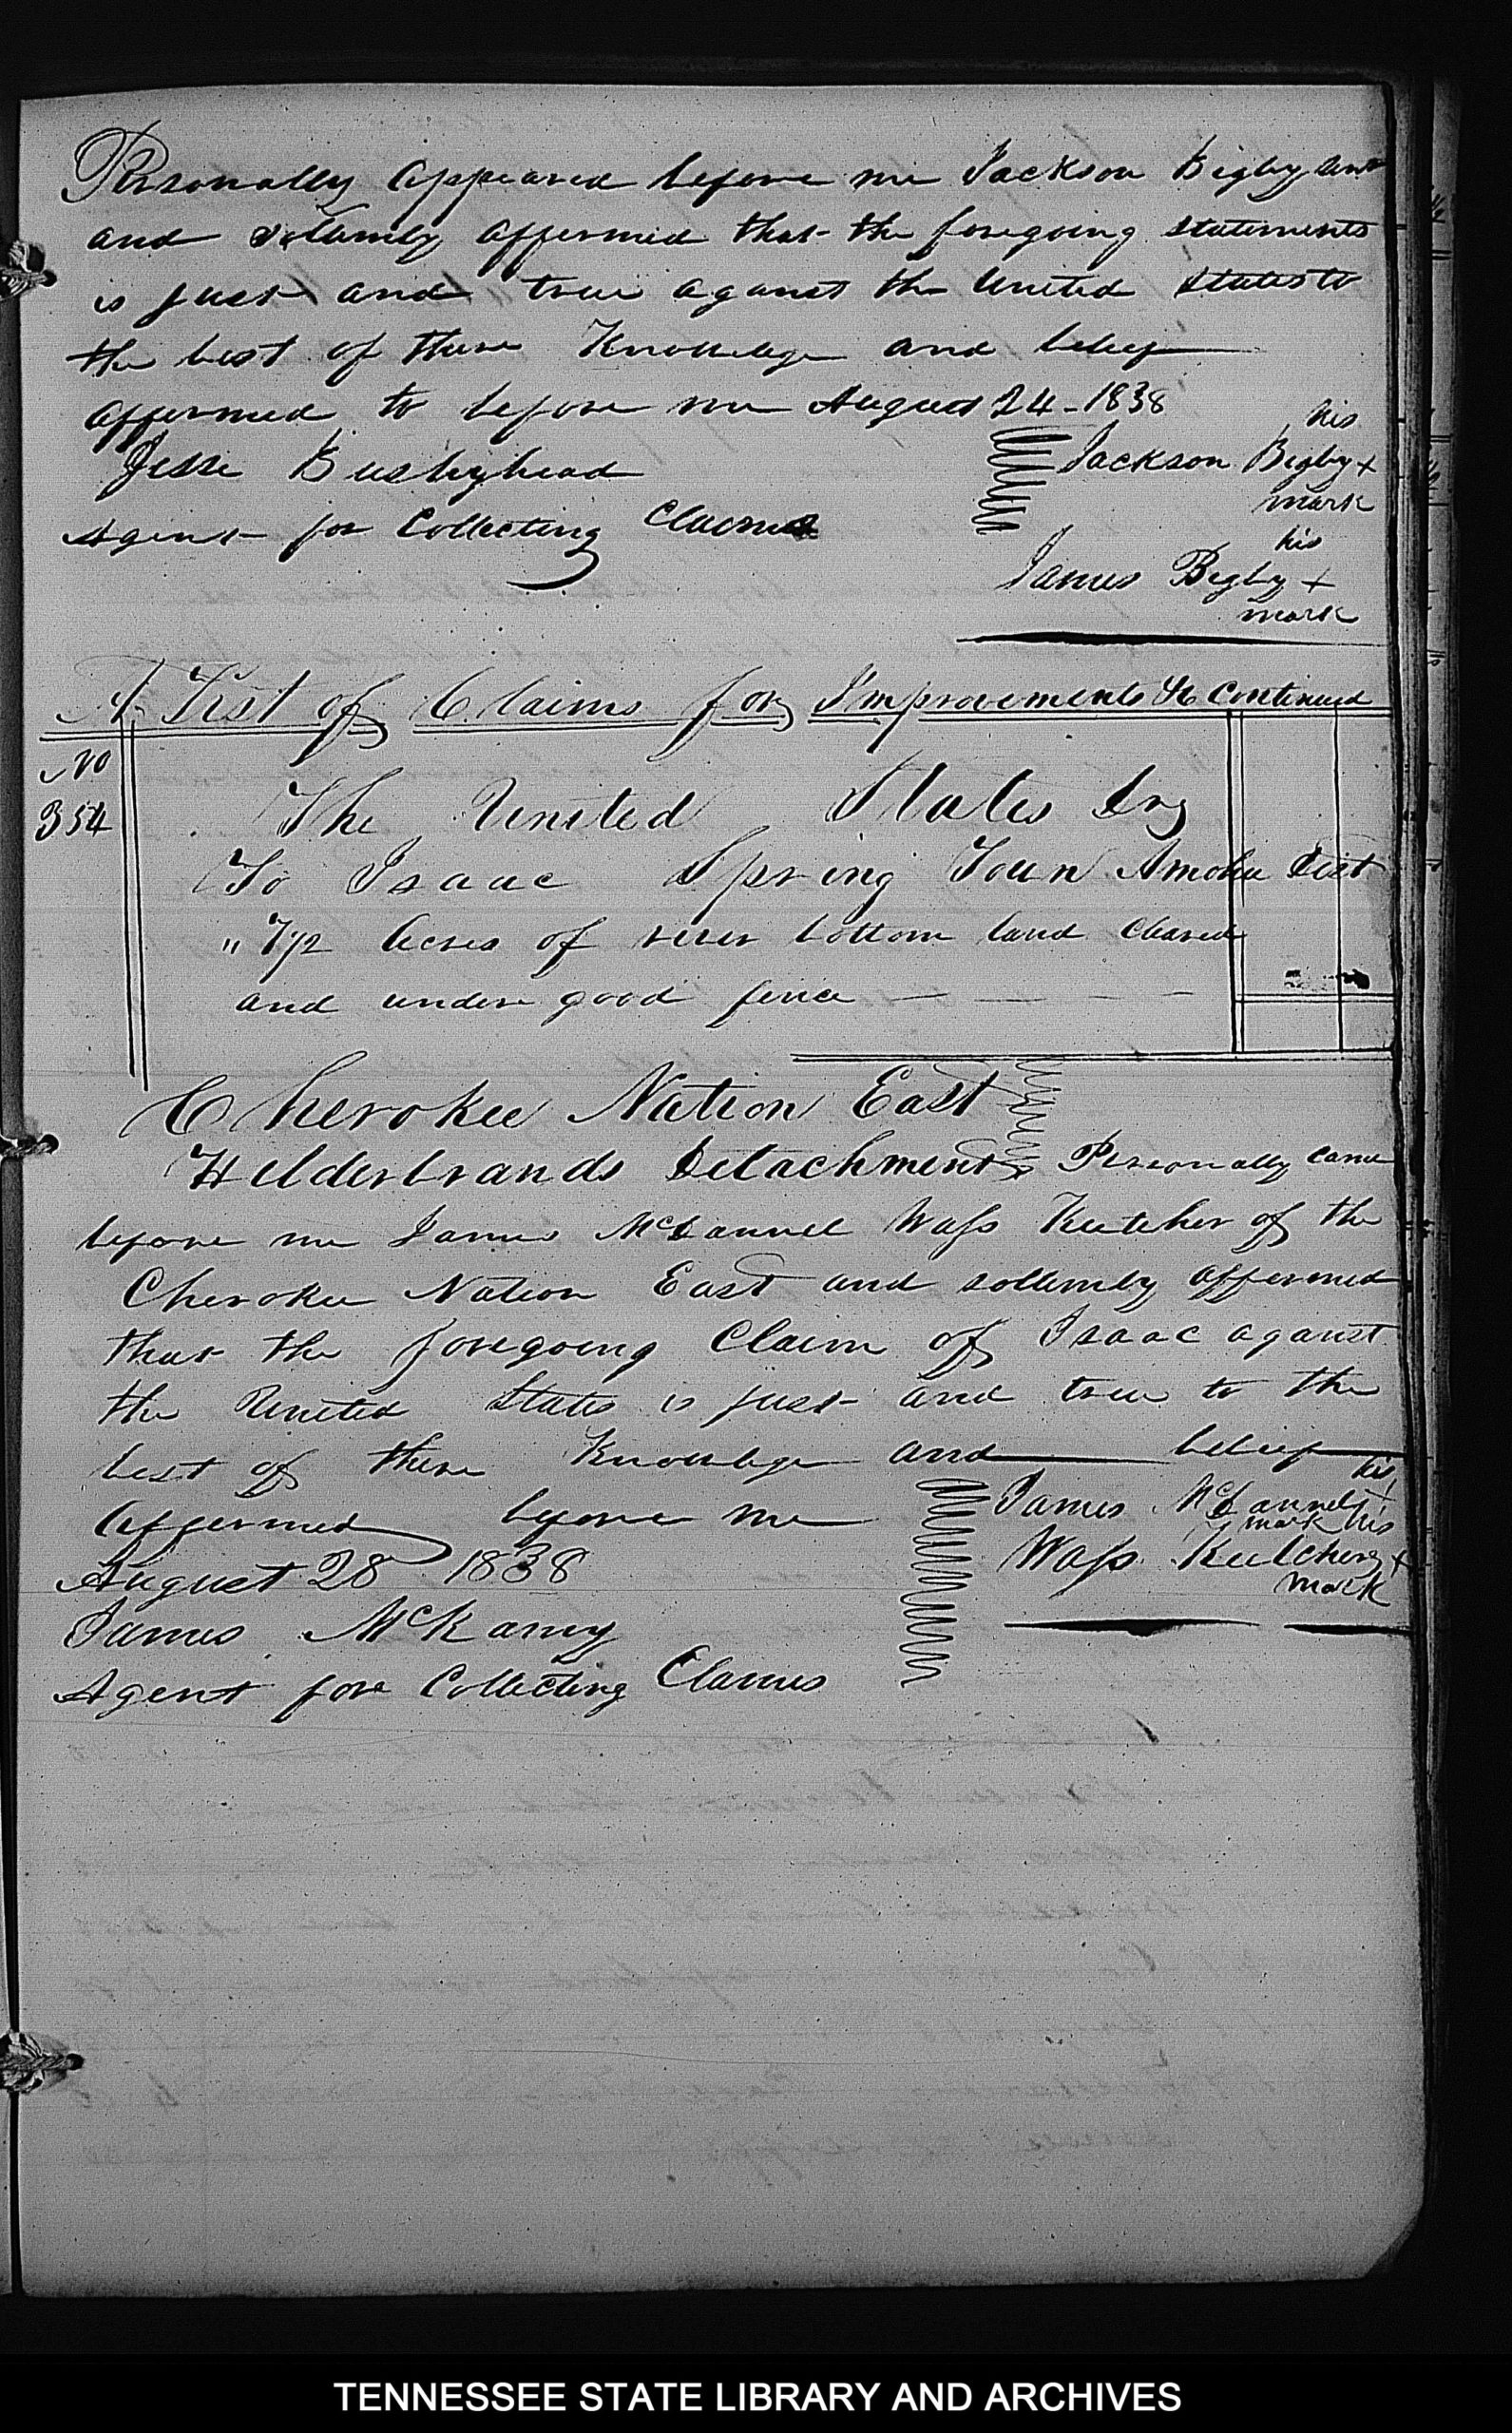 Personally appeared before me Jackson Bigby
and sollemly affermed that the foregoing statements
is just and true against the United States to
the best of there Knowledge and belief
affermed to before me August 24 - 1838
his
Jesse Bushyhead Jackson Bigby +
mark
Agent for Collecting Claims
his
James Bigby +
mark
A List of Claims for Improvements &c Continued
No
354 The United States Dr
To Isaac Spring Town Amohe Dist
" 7 1/2 Acres of river bottom land cleared
and under good fence
Cherokee Nation East
Helderbrands Detachment Personally came
before me James McDannel Wass Keetcher of the
Cherokee Nation East and sollemly affermed
that the foregoing Claim of Isaac against
the United States is just and true to the
best of there Knowledge and belief
his
Affermed before me James McDannel +
mark his
August 28 1838 Wass Keetcher +
mark
James McKamy
Agent for Collecting Claims
TENNESSEE STATE LIBRARY AND ARCHIVES